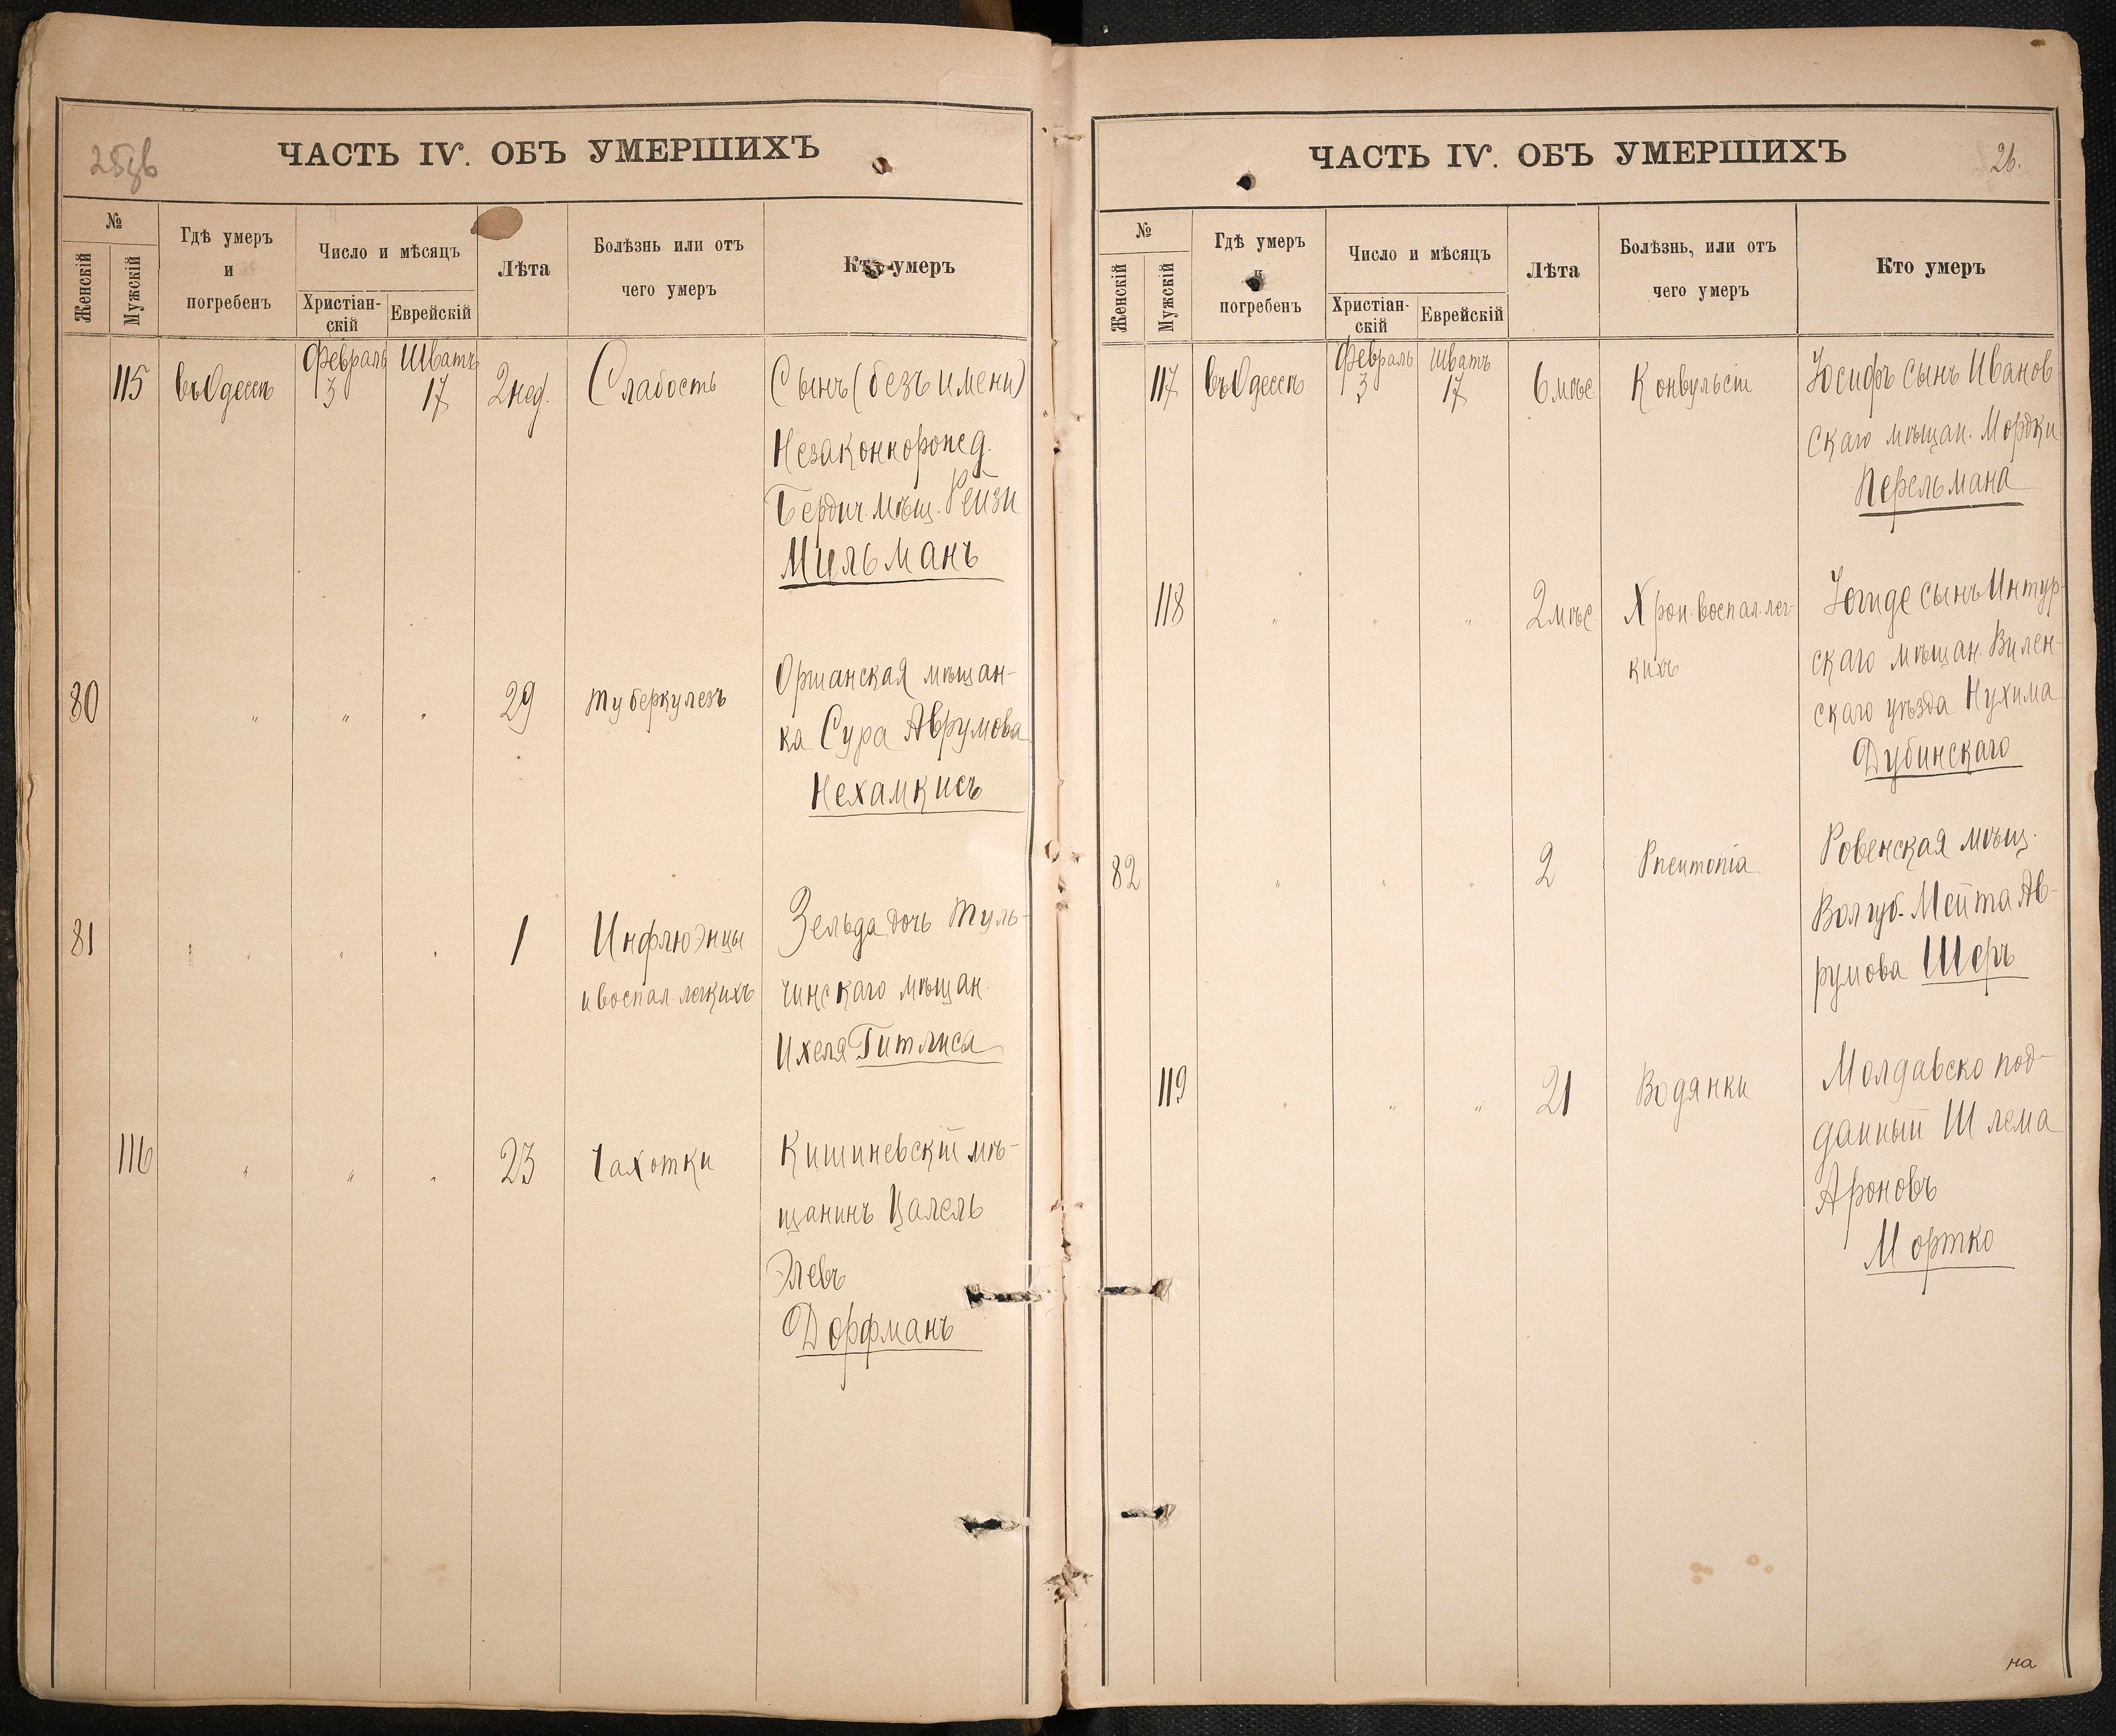 25об
ЧАСТЬ IV. ОБЪ УМЕРШИХЪ
№
Женскій
Мужскій
Гдѣ умеръ
и
погребенъ
Число и мѣсяцъ
Христіан-
скій
Еврейскій
Лѣта
Болѣзнь или отъ
чего умеръ
Кто умеръ
Февраль Шватъ
115 въ Одессѣ 3 17 2 нед. Слабость Сынъ (безъ имени)
Незаконнорожд.
Бердич. мѣщ. Рейзи
Мильманъ
80 " " " 29 Туберкулезъ Оршанская мѣщан-
ка Сура Аврумова
Нехамкисъ
81 " " " 1 Инфлюэнцы Зельда дочь Туль-
и воспал. легкихъ чинскаго мѣщан.
Ихеля Гитлиса
116 " " " 23 Чахотки Кишиневскій мѣ-
щанинъ Цалель
Элевъ
Дорфманъ
ЧАСТЬ IV. ОБЪ УМЕРШИХЪ
26.
№
Женскій
Мужскій
Гдѣ умеръ
и
погребенъ
Число и мѣсяцъ
Христіан-
скій
Еврейскій
Лѣта
Болѣзнь, или отъ
чего умеръ
Кто умеръ
Февраль Шватъ
117 въ Одессѣ 3 17 6 мѣс Конвульсіи Іосифъ сынъ Иванов
скаго мѣщан. Мордки
Перельмана
118 " " " 2 мѣс. Хрон. воспал. лег- сынъ Интур-
кихъ скаго мѣщан. Вилен-
скаго уѣзда Нухима
Дубинскаго
82 " " " 2 Pneumonia Ровенская мѣщ.
Вол. губ. Мейта Ав-
румова Шеръ
119 " " " 21 Водянки Молдавско под-
данный Шлема
Ароновъ
Мортко
на